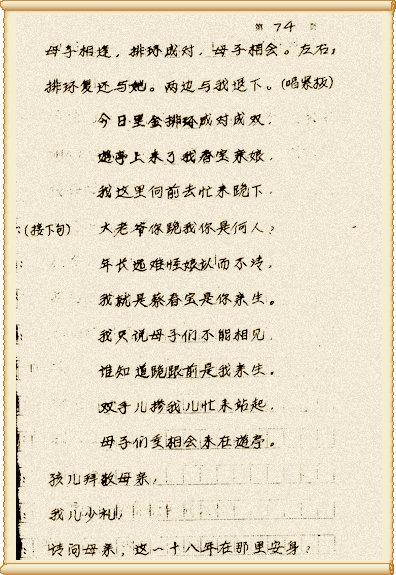 第 74 页
母子相逢，排环成对，母子相会。左右：
排环复还与她。两边与我退下。(唱紧板)
今日里金排环成对成双，
遊亭上来了我春宝亲娘，
我这里向前去忙来跪下，
(接下句) 大老爷你跪我你是何人？
年长远难怪娘认而不清，
我就是蔡春宝是你亲生。
我只说母子们不能相见，
谁知道跪跟前是我亲生。
双手儿搀我儿忙来站起，
母子们重相会来在遊亭。
孩儿拜敬母亲，
我儿少礼，
请问母亲，这一十八年在那里安身？